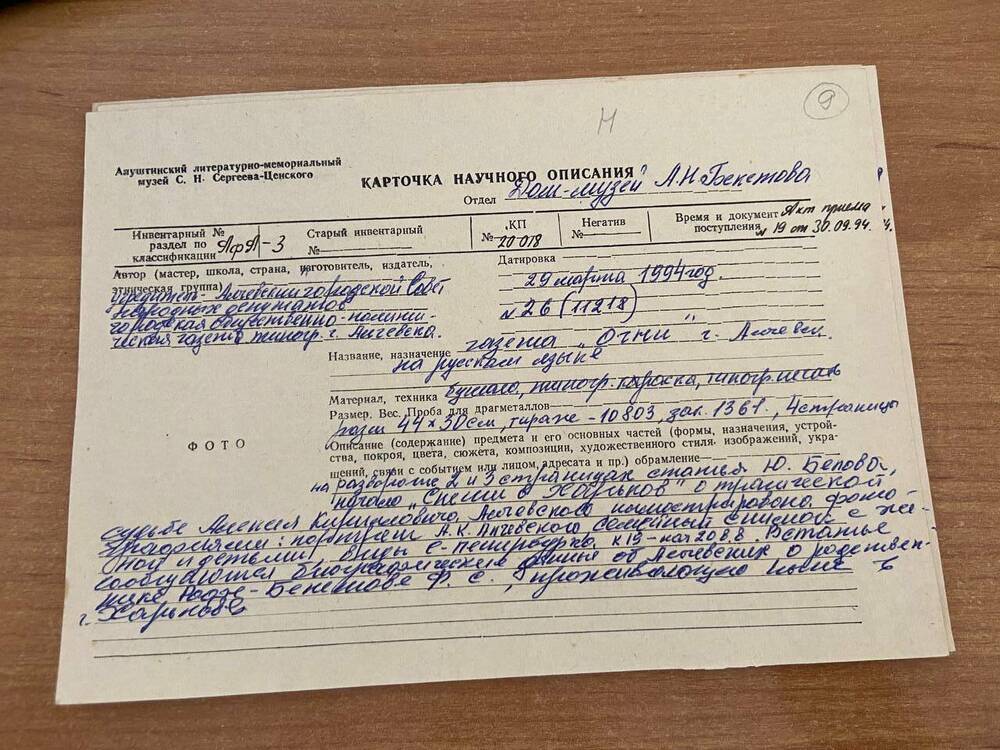 9
Н
Алуштинский литературно-мемориальный
музей С. Н. Сергеева-Ценского
КАРТОЧКА НАУЧНОГО ОПИСАНИЯ
Отдел „Дом-музей" А.Н.Бекетова
Инвентарный №
раздел по
классификации АфП-3
Старый инвентарный
№
КП
№ 20 018
Негатив
№
Время и документ Акт приема
поступления № 19 от 30.09.94г.
Автор (мастер, школа, страна, изготовитель, издатель,
этническая группа)
учредитель - Алчевский городской Совет
народных депутатов
городская общественно-полити-
ческая газета типогр. г. Алчевска.
Датировка
29 марта 1994 год.
№ 26 (11218)
Название, назначение газета „Огни" г. Алчевск
на русском языке
Материал, техника бумага, типогр. краска, типогр. печать
Размер. Вес. Проба для драгметаллов
разм 44 × 30 см, тираж - 10803, зак. 1361, 4 страницы
ФОТО
Описание (содержание) предмета и его основных частей (формы, назначения, устрой-
ства, покроя, цвета, сюжета, композиции, художественного стиля изображений, укра-
шений, связи с событием или лицом, адресата и пр.) обрамление
на развороте 2 и 3 страницах статья Ю. Белова,
начало о трагической
судьбе Алексея Кирилловича Алчевского иллюстрирована фото
графиями: портрет А.К. Алчевского семейный снимок с же-
ной и детьми виды с-петербурга к 19 - нач 20 в в. В статье
сообщаются биографические данные об Алчевских о родствен-
нике Ф. С., проживающую ныне в
г. Харькове